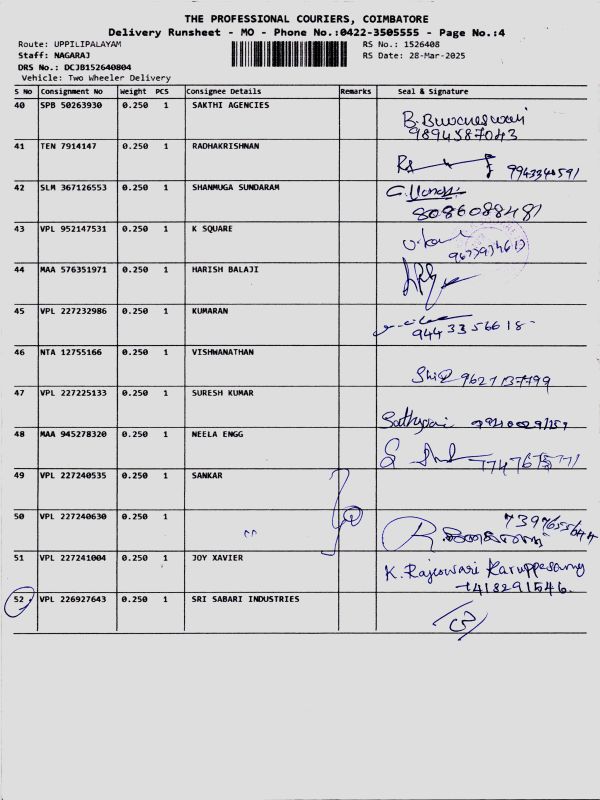 THE PROFESSIONAL COURIERS, COIMBATORE
Delivery Runsheet - MO - Phone No.:0422-3505555 - Page No.:4
Route: UPPILIPALAYAM RS No.: 1526408
Staff: NAGARAJ RS Date: 28-Mar-2025
DRS No.: DCJB152640804
Vehicle: Two Wheeler Delivery
S No Consignment No Weight PCS Consignee Details Remarks Seal & Signature
40 SPB 50263930 0.250 1 SAKTHI AGENCIES
B. Buvaneswari
9894587043
41 TEN 7914147 0.250 1 RADHAKRISHNAN
9943340591
42 SLM 367126553 0.250 1 SHANMUGA SUNDARAM
8086088481
43 VPL 952147531 0.250 1 K SQUARE
44 MAA 576351971 0.250 1 HARISH BALAJI
45 VPL 227232986 0.250 1 KUMARAN
9443356618
46 NTA 12755166 0.250 1 VISHWANATHAN
9627137799
47 VPL 227225133 0.250 1 SURESH KUMAR
48 MAA 945278320 0.250 1 NEELA ENGG
49 VPL 227240535 0.250 1 SANKAR
50 VPL 227240630 0.250 1 "
51 VPL 227241004 0.250 1 JOY XAVIER
K. Rajeswari Karuppasamy
7418291546.
52 VPL 226927643 0.250 1 SRI SABARI INDUSTRIES
13